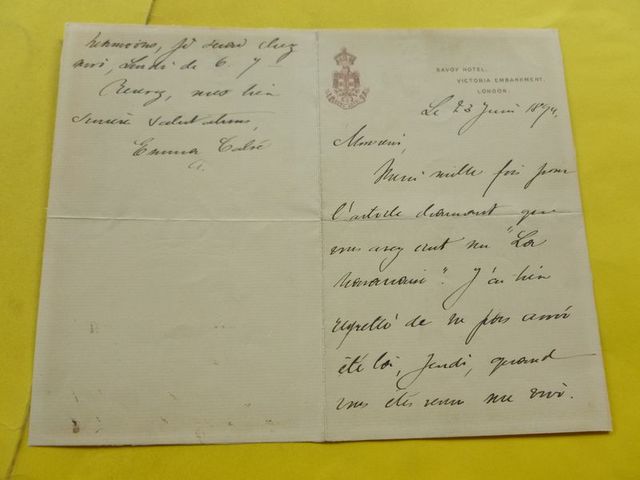 SAVOY HOTEL,
VICTORIA EMBANKMENT,
LONDON.
Le 23 Juin 1894.
Monsieur,
Merci mille fois pour
l'article charmant que
vous avez écrit sur "La
Navarraise". J'ai bien
regretté de ne pas avoir
été là, Jeudi, quand
vous êtes venu me voir.
Néanmoins, je serai chez
moi, Lundi de 6. 7
Recevez, mes bien
sincères salutations,
Emma Calvé